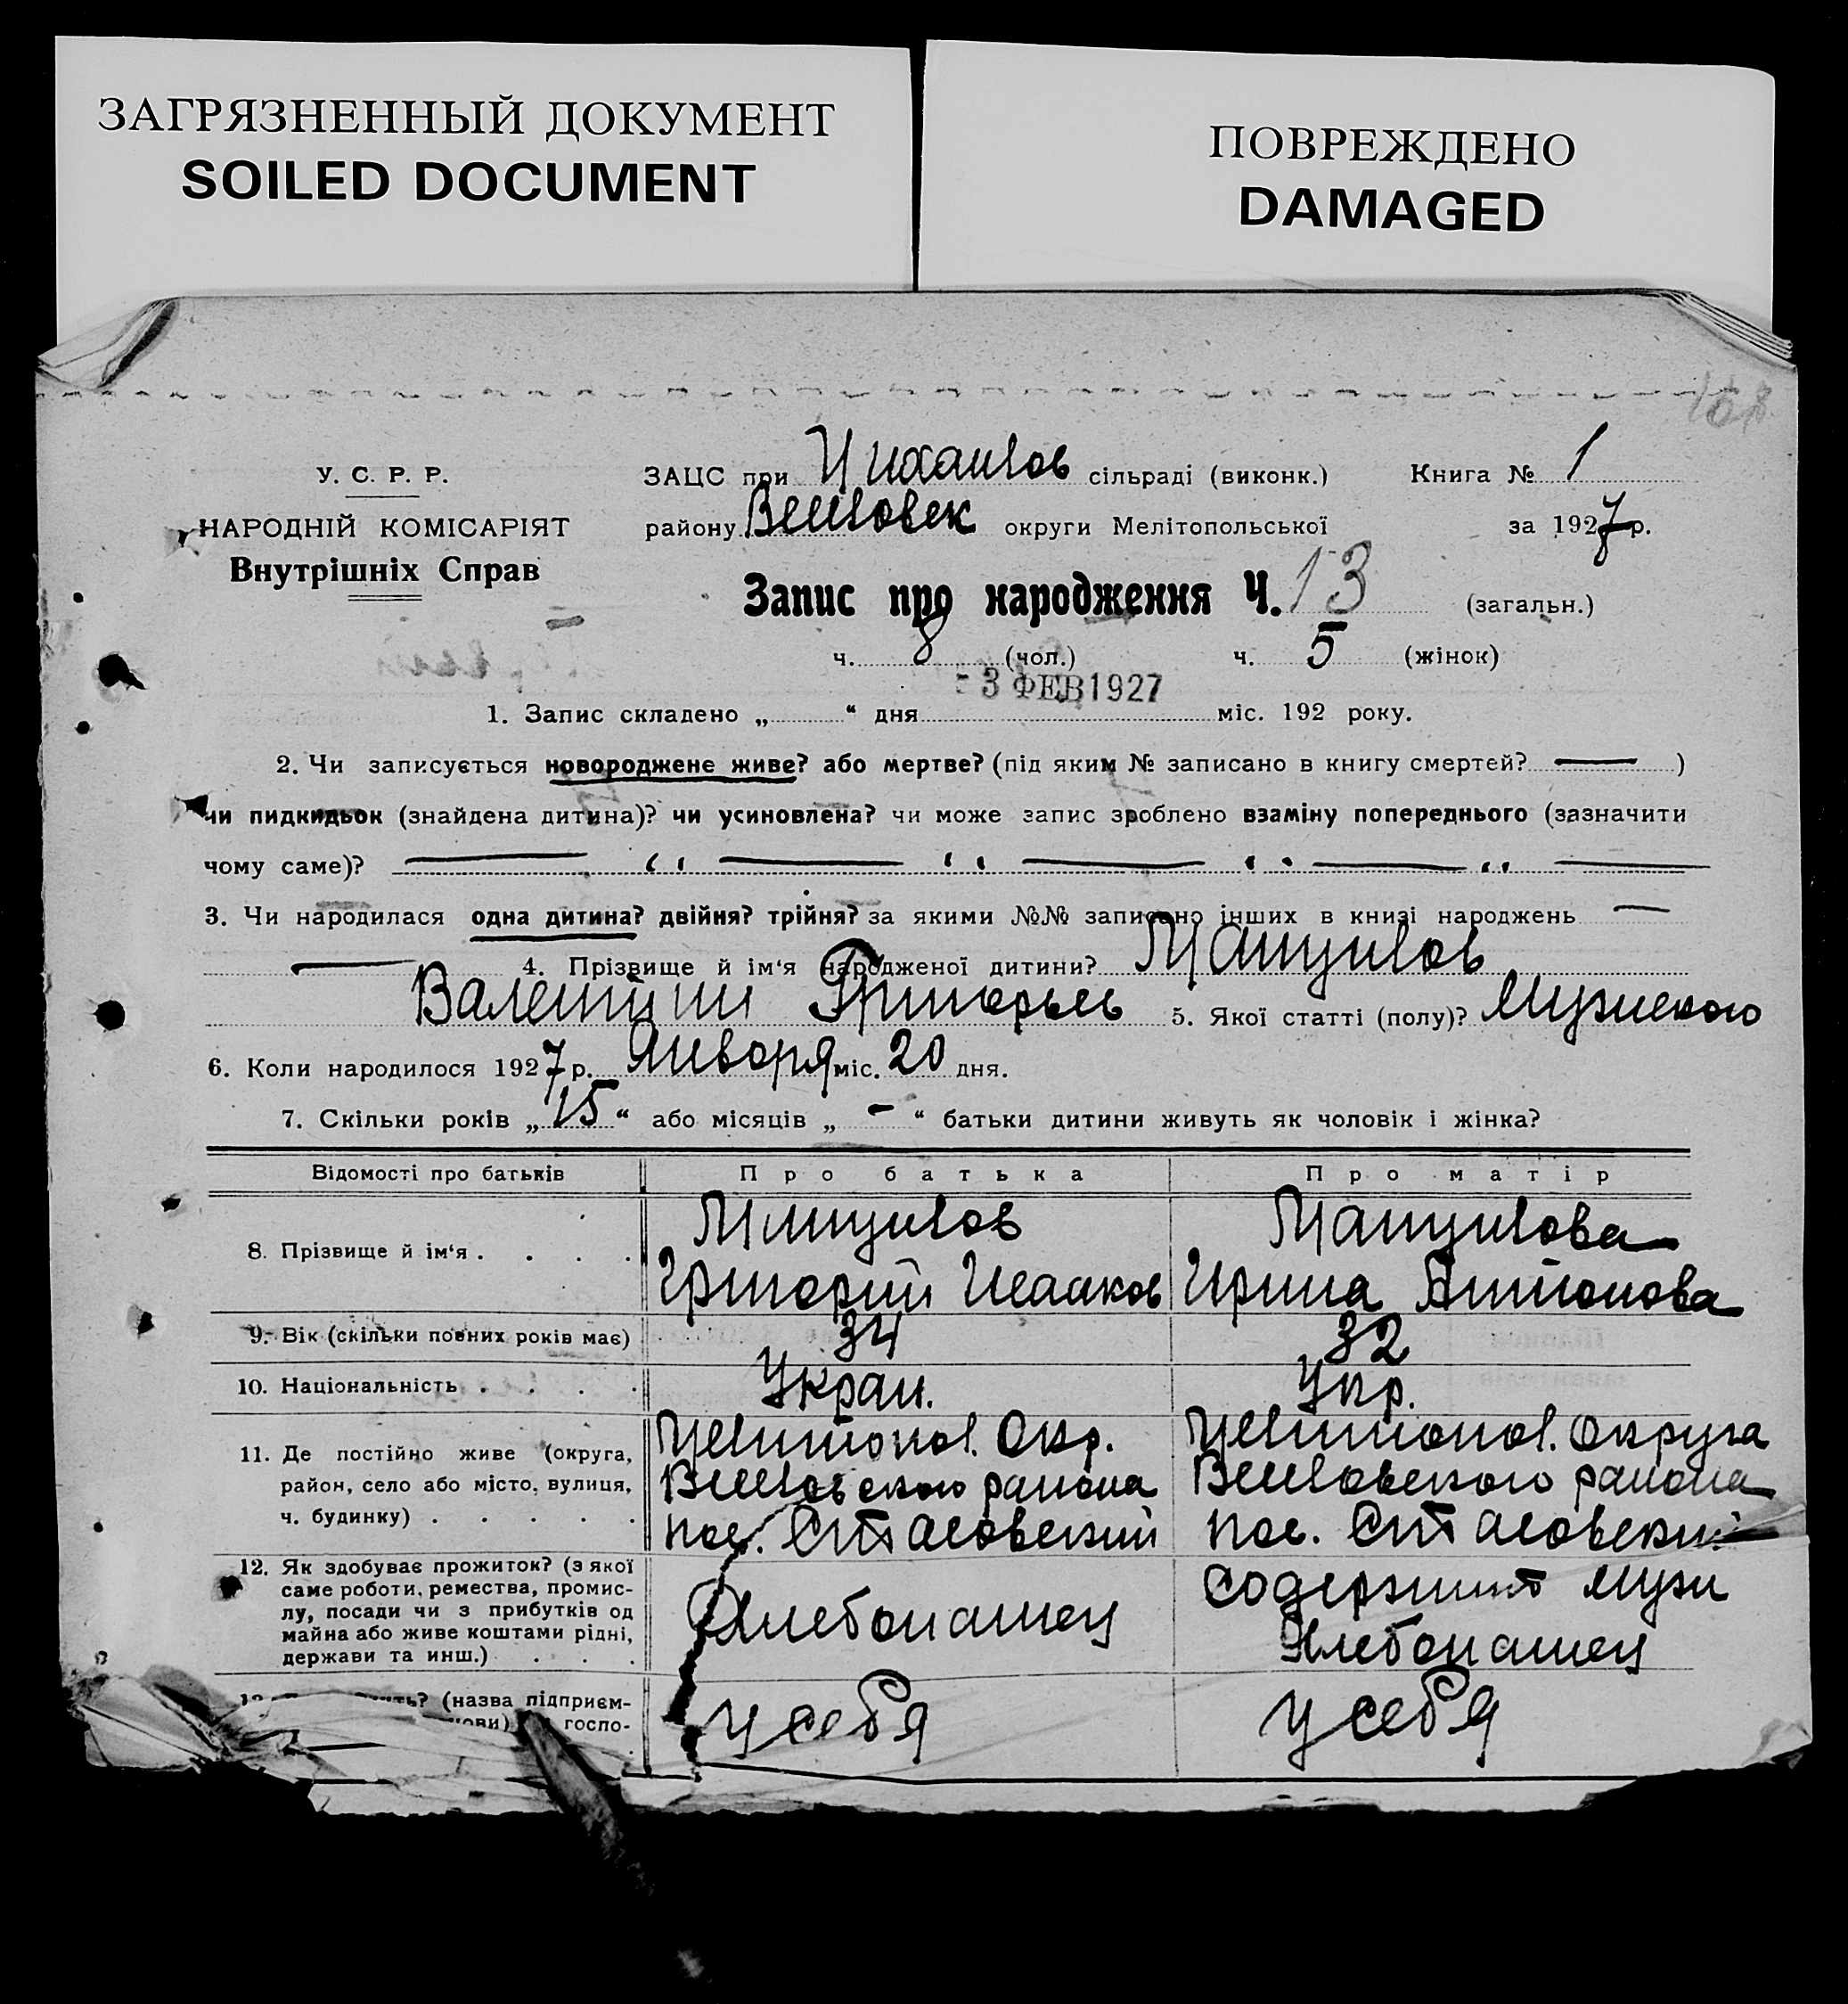 ЗАГРЯЗНЕННЫЙ ДОКУМЕНТ
SOILED DOCUMENT
ПОВРЕЖДЕНО
DAMAGED
168
У. С. Р. Р.
НАРОДНІЙ КОМІСАРІЯТ
Внутрішніх Справ
ЗАЦС при Михайлов сільраді (виконк.) Книга № 1
району Веселовск округи Мелітопольської за 1927 р.
Запис про народження Ч. 13 (загальн.)
ч. 8 (чол.) ч. 5 (жінок)
- 3 ФЕВ 1927
1. Запис складено „ “ дня міс. 192 року.
2. Чи записується новороджене живе? або мертве? (під яким № записано в книгу смертей? — )
чи пидкидьок (знайдена дитина)? чи усиновлена? чи може запис зроблено взаміну попереднього (зазначити
чому саме)? — „ — „ — „ — „ —
3. Чи народилася одна дитина? двійня? трійня? за якими №№ записано інших в книзі народжень —
— 4. Прізвище й ім‘я народженої дитини?
Валентин Григорьев 5. Якої статті (полу)? Мужского
6. Коли народилося 1927 р. Января міс. 20 дня.
7. Скільки років „15“ або місяців „ - “ батьки дитини живуть як чоловік і жінка?
Відомості про батьків Про батька Про матір
8. Прізвище й ім‘я . . . .
Григорий Исааков Ирина Антонова
9. Вік (скільки повних років має) 34 32
10. Національність . . . . Украи. Укр.
11. Де постійно живе (округа, Мелитопол. Окр. Мелитопол. Округа
район, село або місто, вулиця, Веселовского района Веселовского района
ч. будинку) . . . . . пос. Стасовский пос. Стасовский
12. Як здобуває прожиток? (з якої
саме роботи, ремества, промис-
лу, посади чи з прибутків од
майна або живе коштами рідні,
держави та инш.) . . .
Хлебопашец
Содержит муж
Хлебопашец
(назва підприєм-
госпо-
у себя у себя